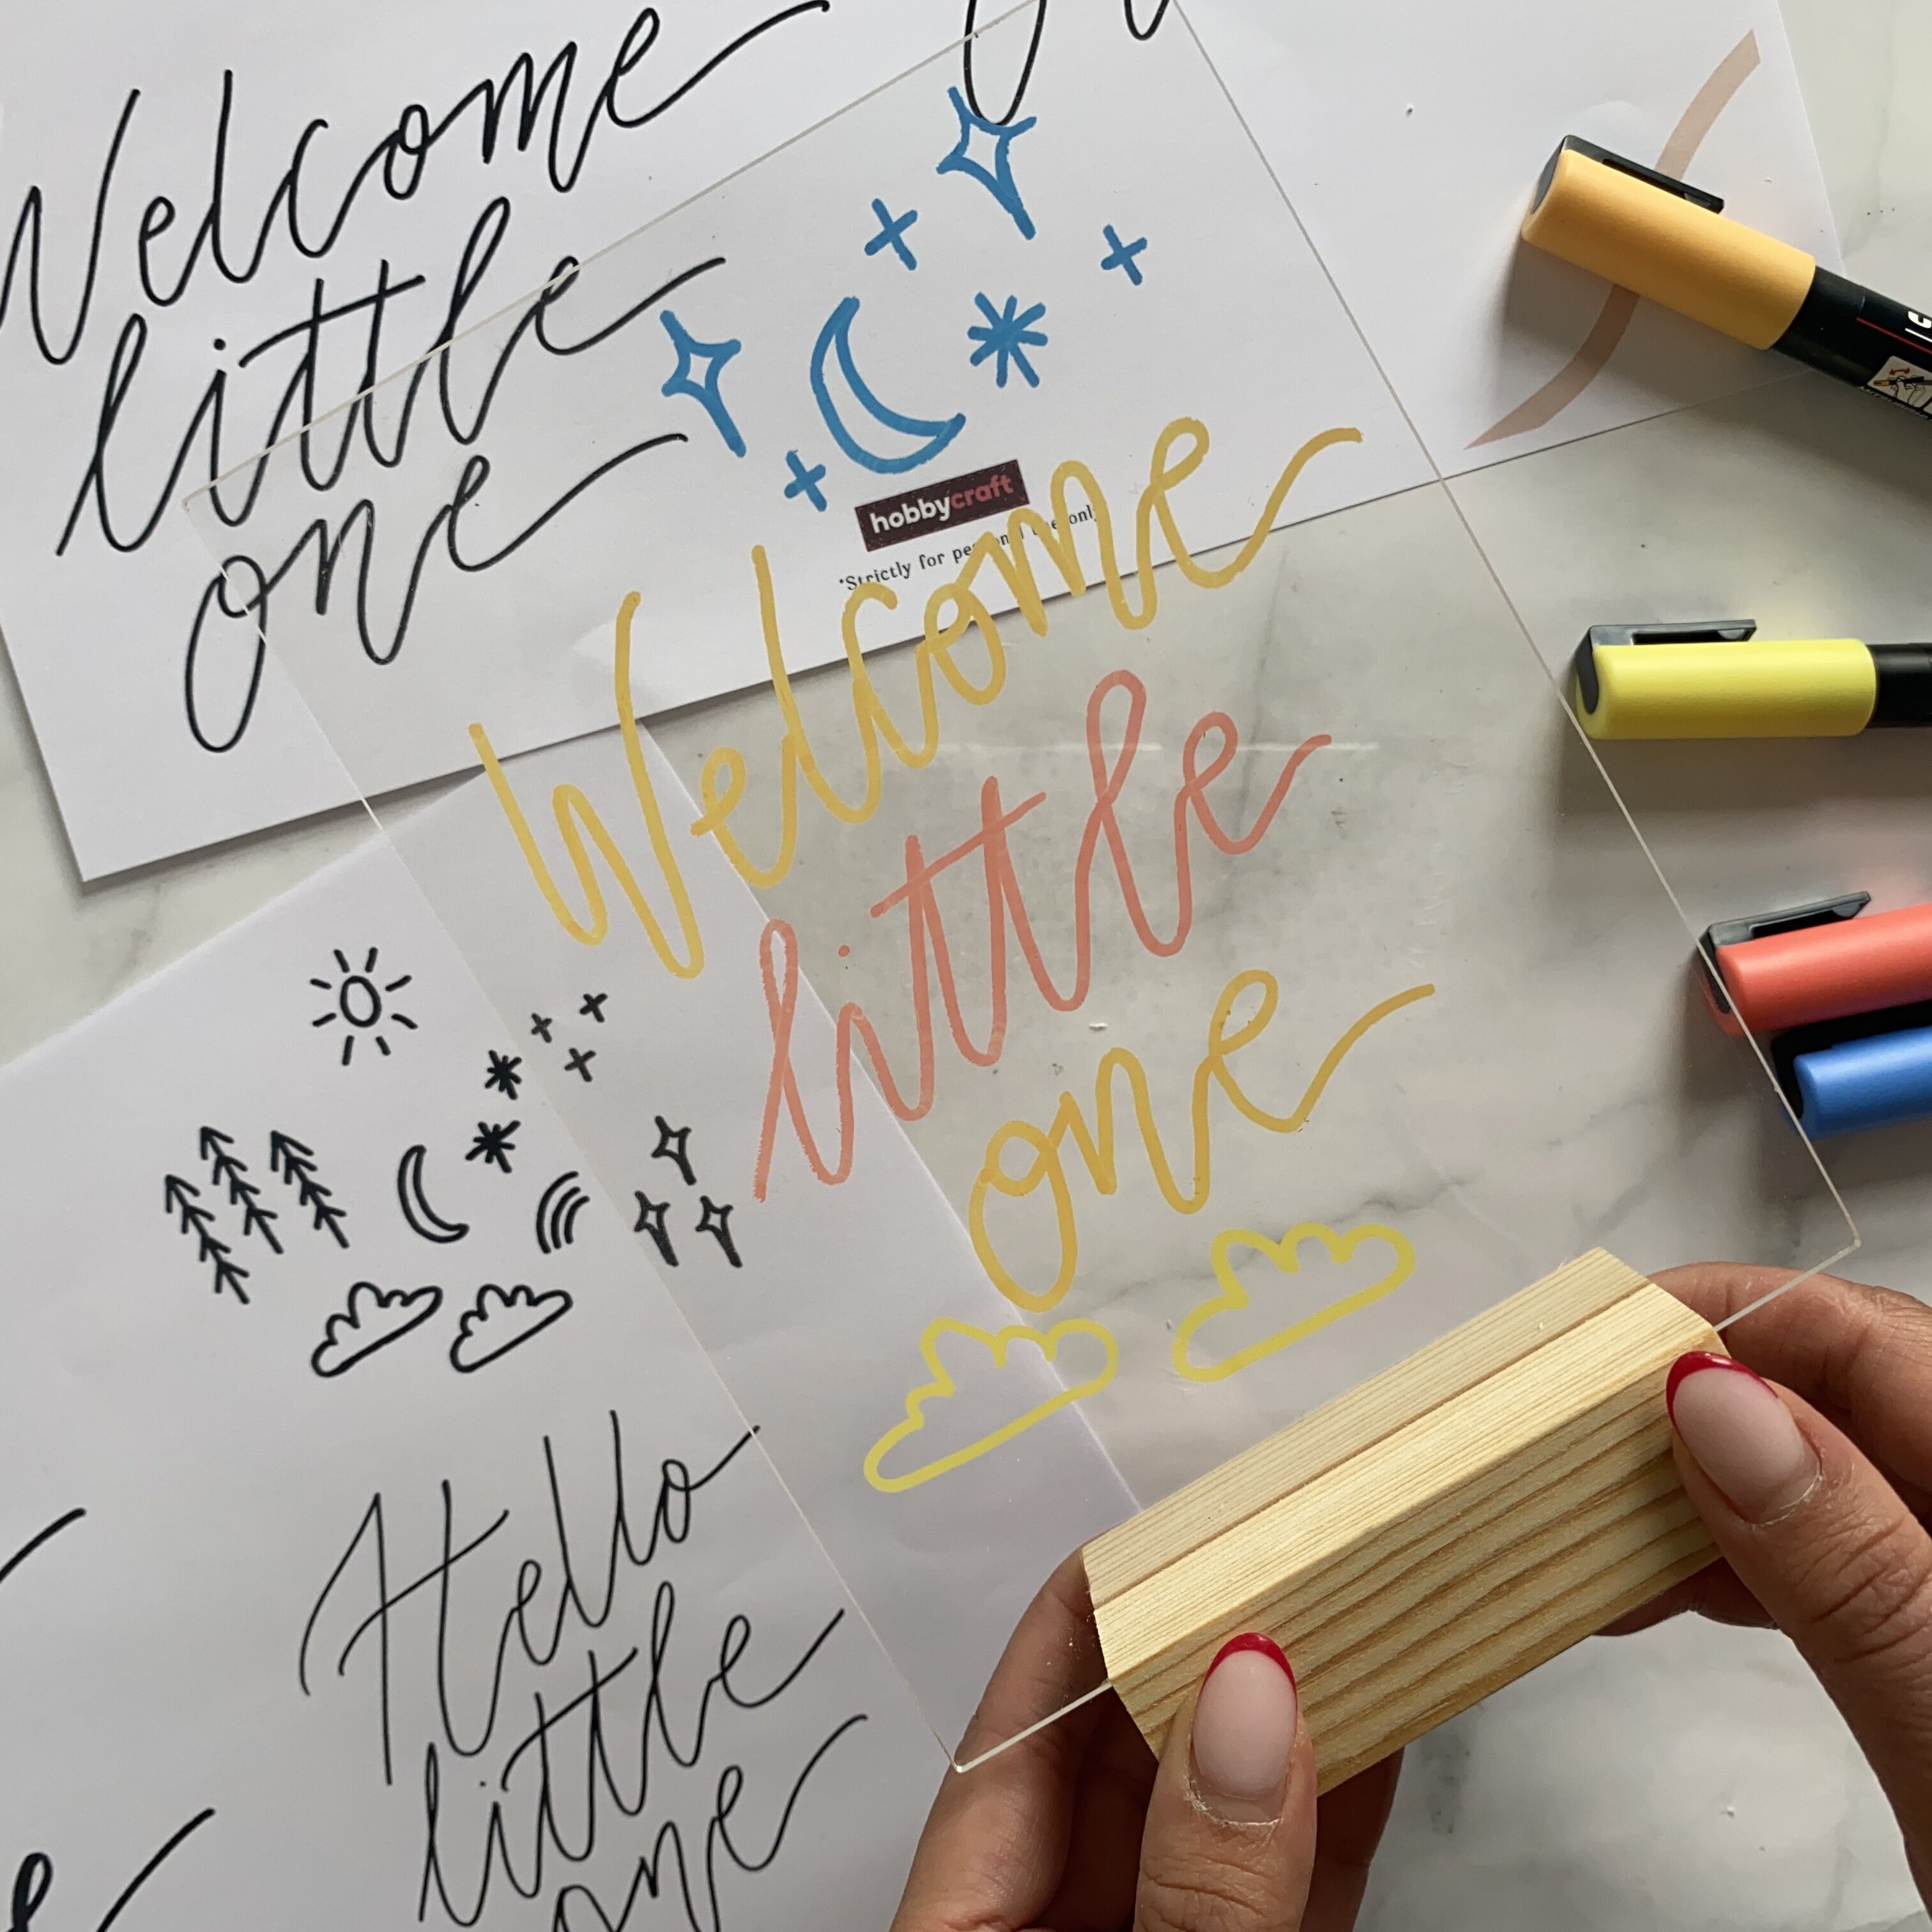 Welcome
little
one
hobbycraft
*Strictly for personal use only
Welcome
little
one
Hello
little
one